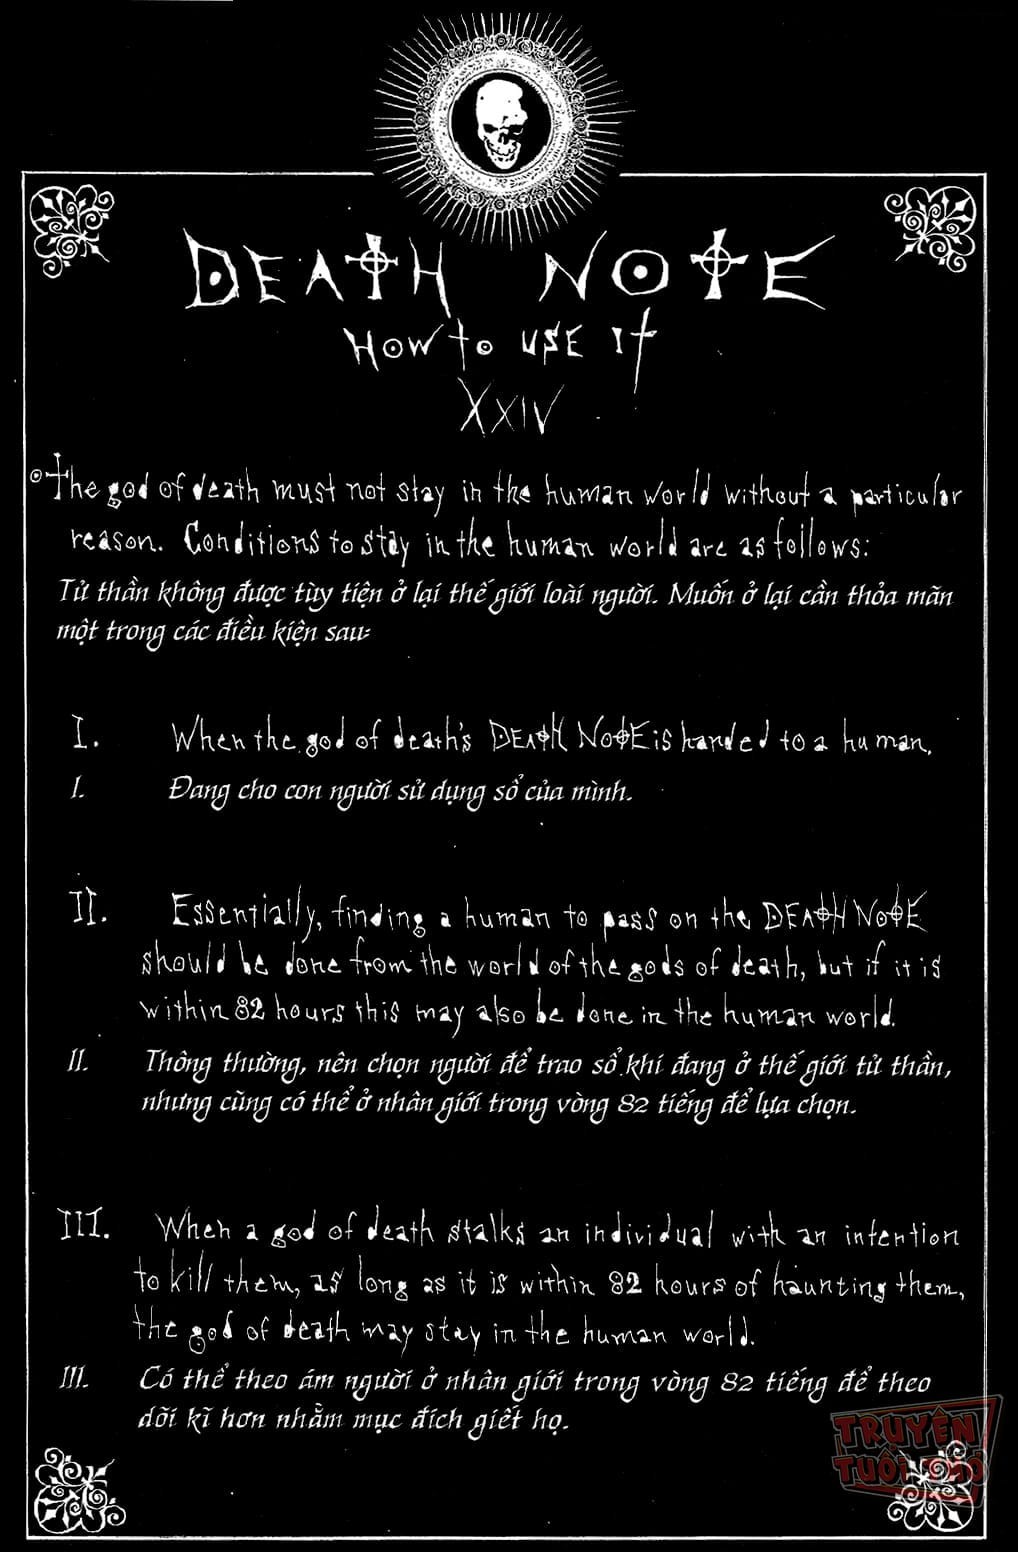 DEATH NOTE
HOW TO USE IT
XXIV
The god of death must not stay in the human world without a particular
reason. Conditions to stay in the human world are as follows:
Tử thần không được tùy tiện ở lại thế giới loài người. Muốn ở lại cần thỏa mãn
một trong các điều kiện sau:
I. When the god of death's DEATH NOTE is handed to a human.
I. Đang cho con người sử dụng sổ của mình.
II. Essentially, finding a human to pass on the DEATH NOTE
should be done from the world of the gods of death, but if it is
within 82 hours this may also be done in the human world.
II. Thông thường, nên chọn người để trao sổ khi đang ở thế giới tử thần,
nhưng cũng có thể ở nhân giới trong vòng 82 tiếng để lựa chọn.
III. When a god of death stalks an individual with an intention
to kill them, as long as it is within 82 hours of haunting them,
the god of death may stay in the human world.
III. Có thể theo ám người ở nhân giới trong vòng 82 tiếng để theo
dõi kĩ hơn nhằm mục đích giết họ.
TRUYỆN
TUỔI THƠ